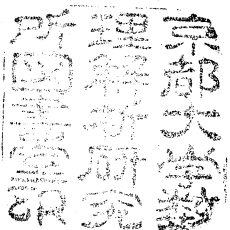 京都大學數
理解析研究
所圖書室印